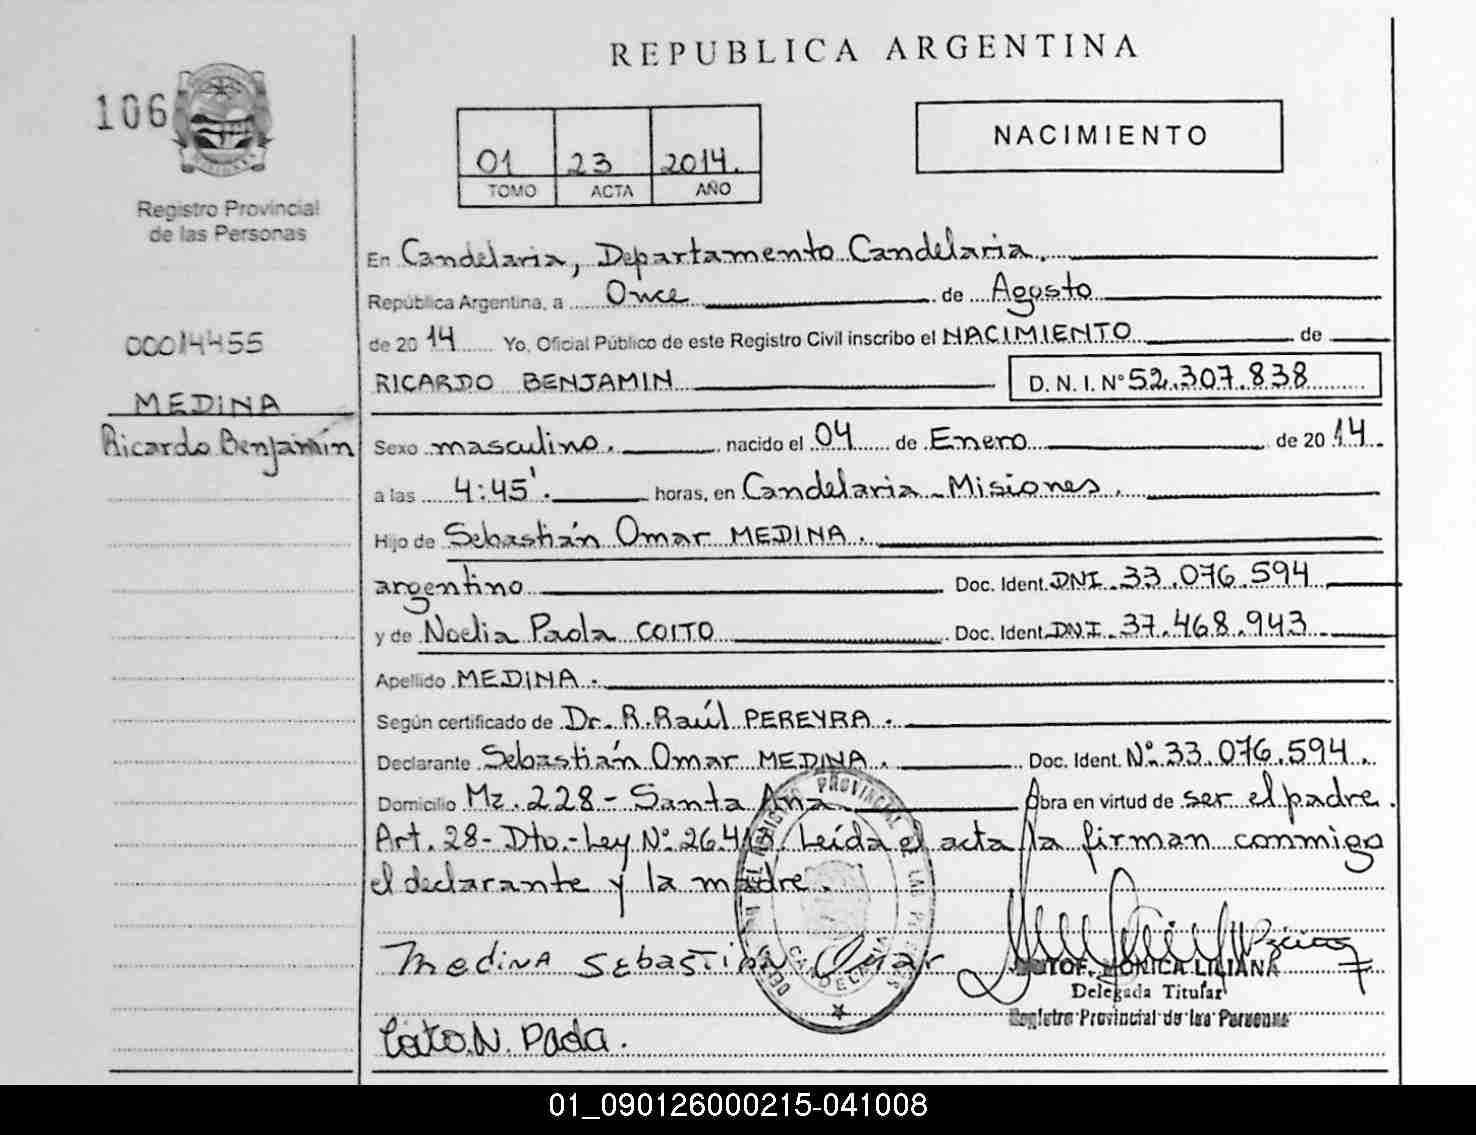 REPUBLICA ARGENTINA
106
01 23 2014.
TOMO ACTA AÑO
NACIMIENTO
Registro Provincial
de las Personas
00014455
MEDINA
Ricardo Benjamín
En Candelaria, Departamento Candelaria.
República Argentina, a Once de Agosto
de 2014 Yo, Oficial Público de este Registro Civil inscribo el NACIMIENTO de
RICARDO BENJAMIN D. N. I. N° 52.307.838
Sexo masculino. nacido el 04 de Enero de 2014.
a las 4:45'. horas, en Candelaria - Misiones.
Hijo de Sebastián Omar MEDINA.
argentino Doc. Ident. DNI. 33.076.594
y de Noelia Paola COITO Doc. Ident. DNI. 37.468.943
Apellido MEDINA.
Según certificado de Dr. R. Raúl PEREYRA.
Declarante Sebastián Omar MEDINA. Doc. Ident. N° 33.076.594.
Domicilio Mz. 228 - Santa Ana Obra en virtud de ser el padre.
Art. 28 - Dto.- Ley N° 26.413. Leída el acta la firman conmigo
el declarante y la madre.
MEDINA SEBASTIAN Omar
MONICA LILIANA
Delegada Titular
Registro Provincial de las Personas
CANDELARIA
Coito. N. Paola.
01_090126000215-041008